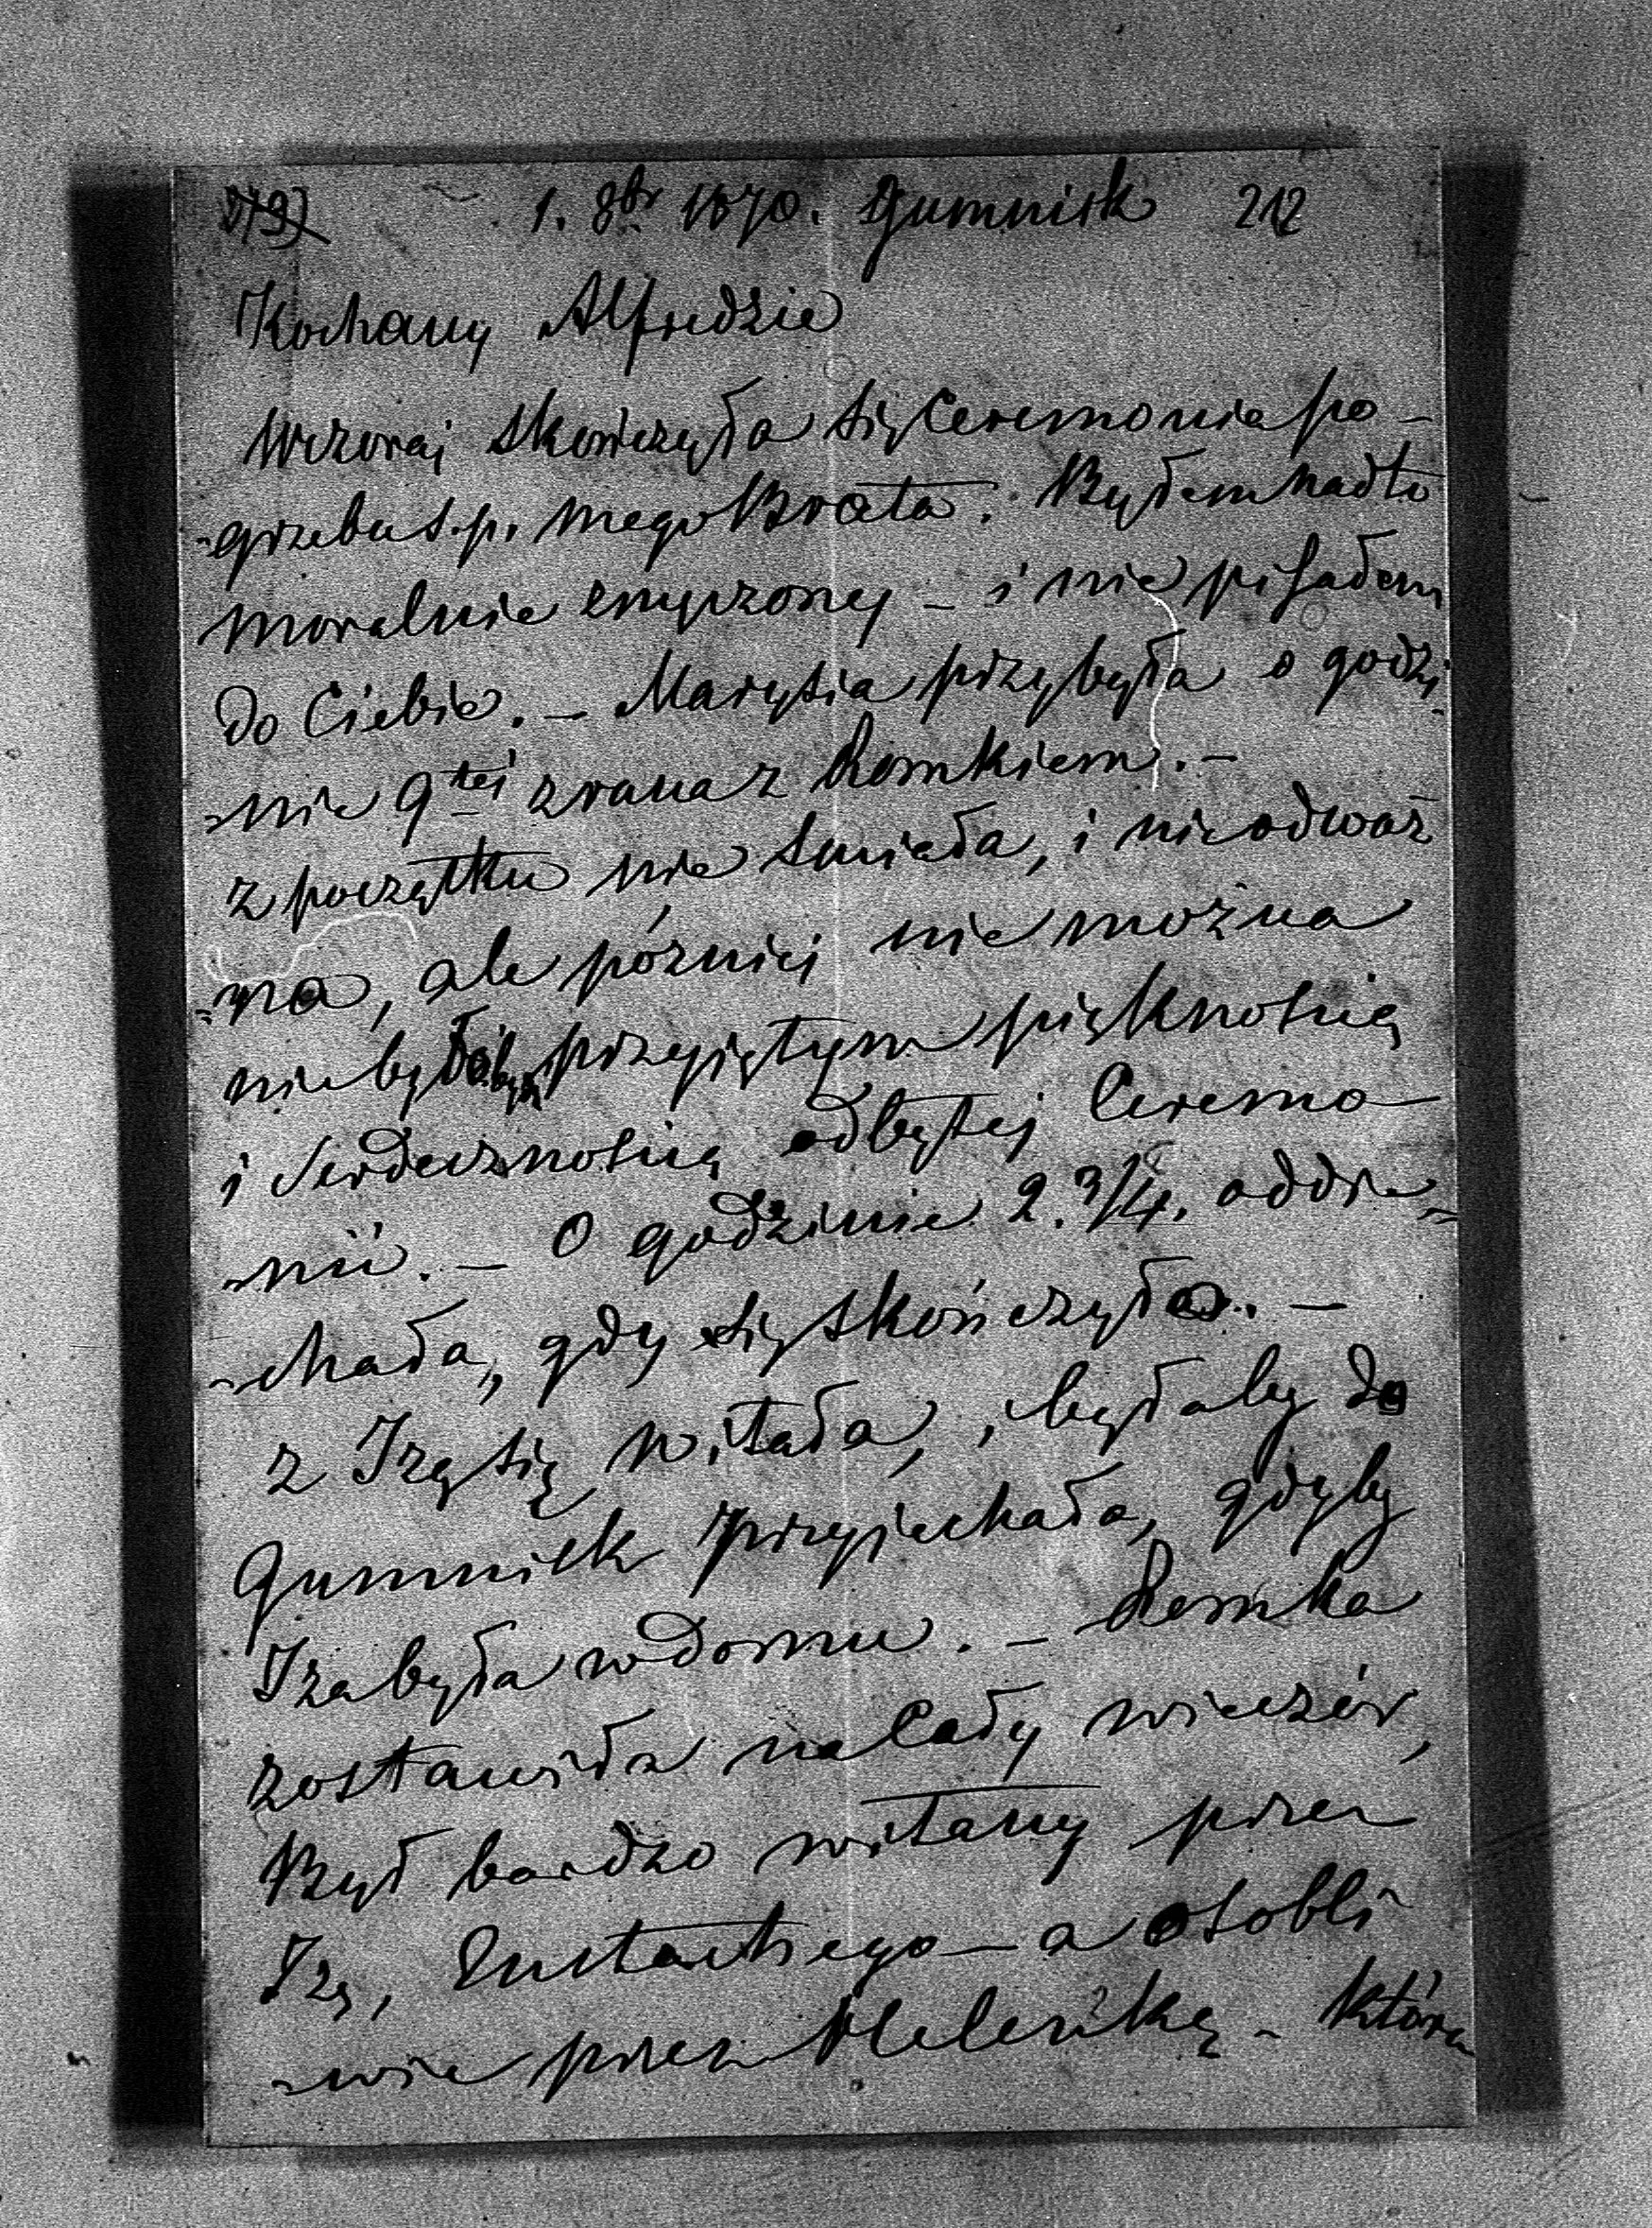 1. 8br 1870. Gumnisk 212
Kochany Alfredzie
Wczoraj skończyła się Ceremonia po-
-grzebu s.p. mego Brata. Byłem nadto
moralnie zmęczony – i nie pisałem
do Ciebie. – Marysia przybyła o godzi
-nie 9tej z rana z Romkiem. –
z początku nie śmiała, i nie odważ
-na, ale później nie można
nie być przejętym pięknością
i serdecznością odbytej Ceremo
-nii. – O godzinie 2. 3/4. oddje=
-chała, gdy się skończyło. –
z Izą się witała, i byłaby do
Gumnisk przyjechała, gdyby
Iza była w domu. – Romka
zostawiła na cały wieczór,
Był bardzo witany przez
Izę, Eustachego – a osobli
-wie przez Helenkę – która